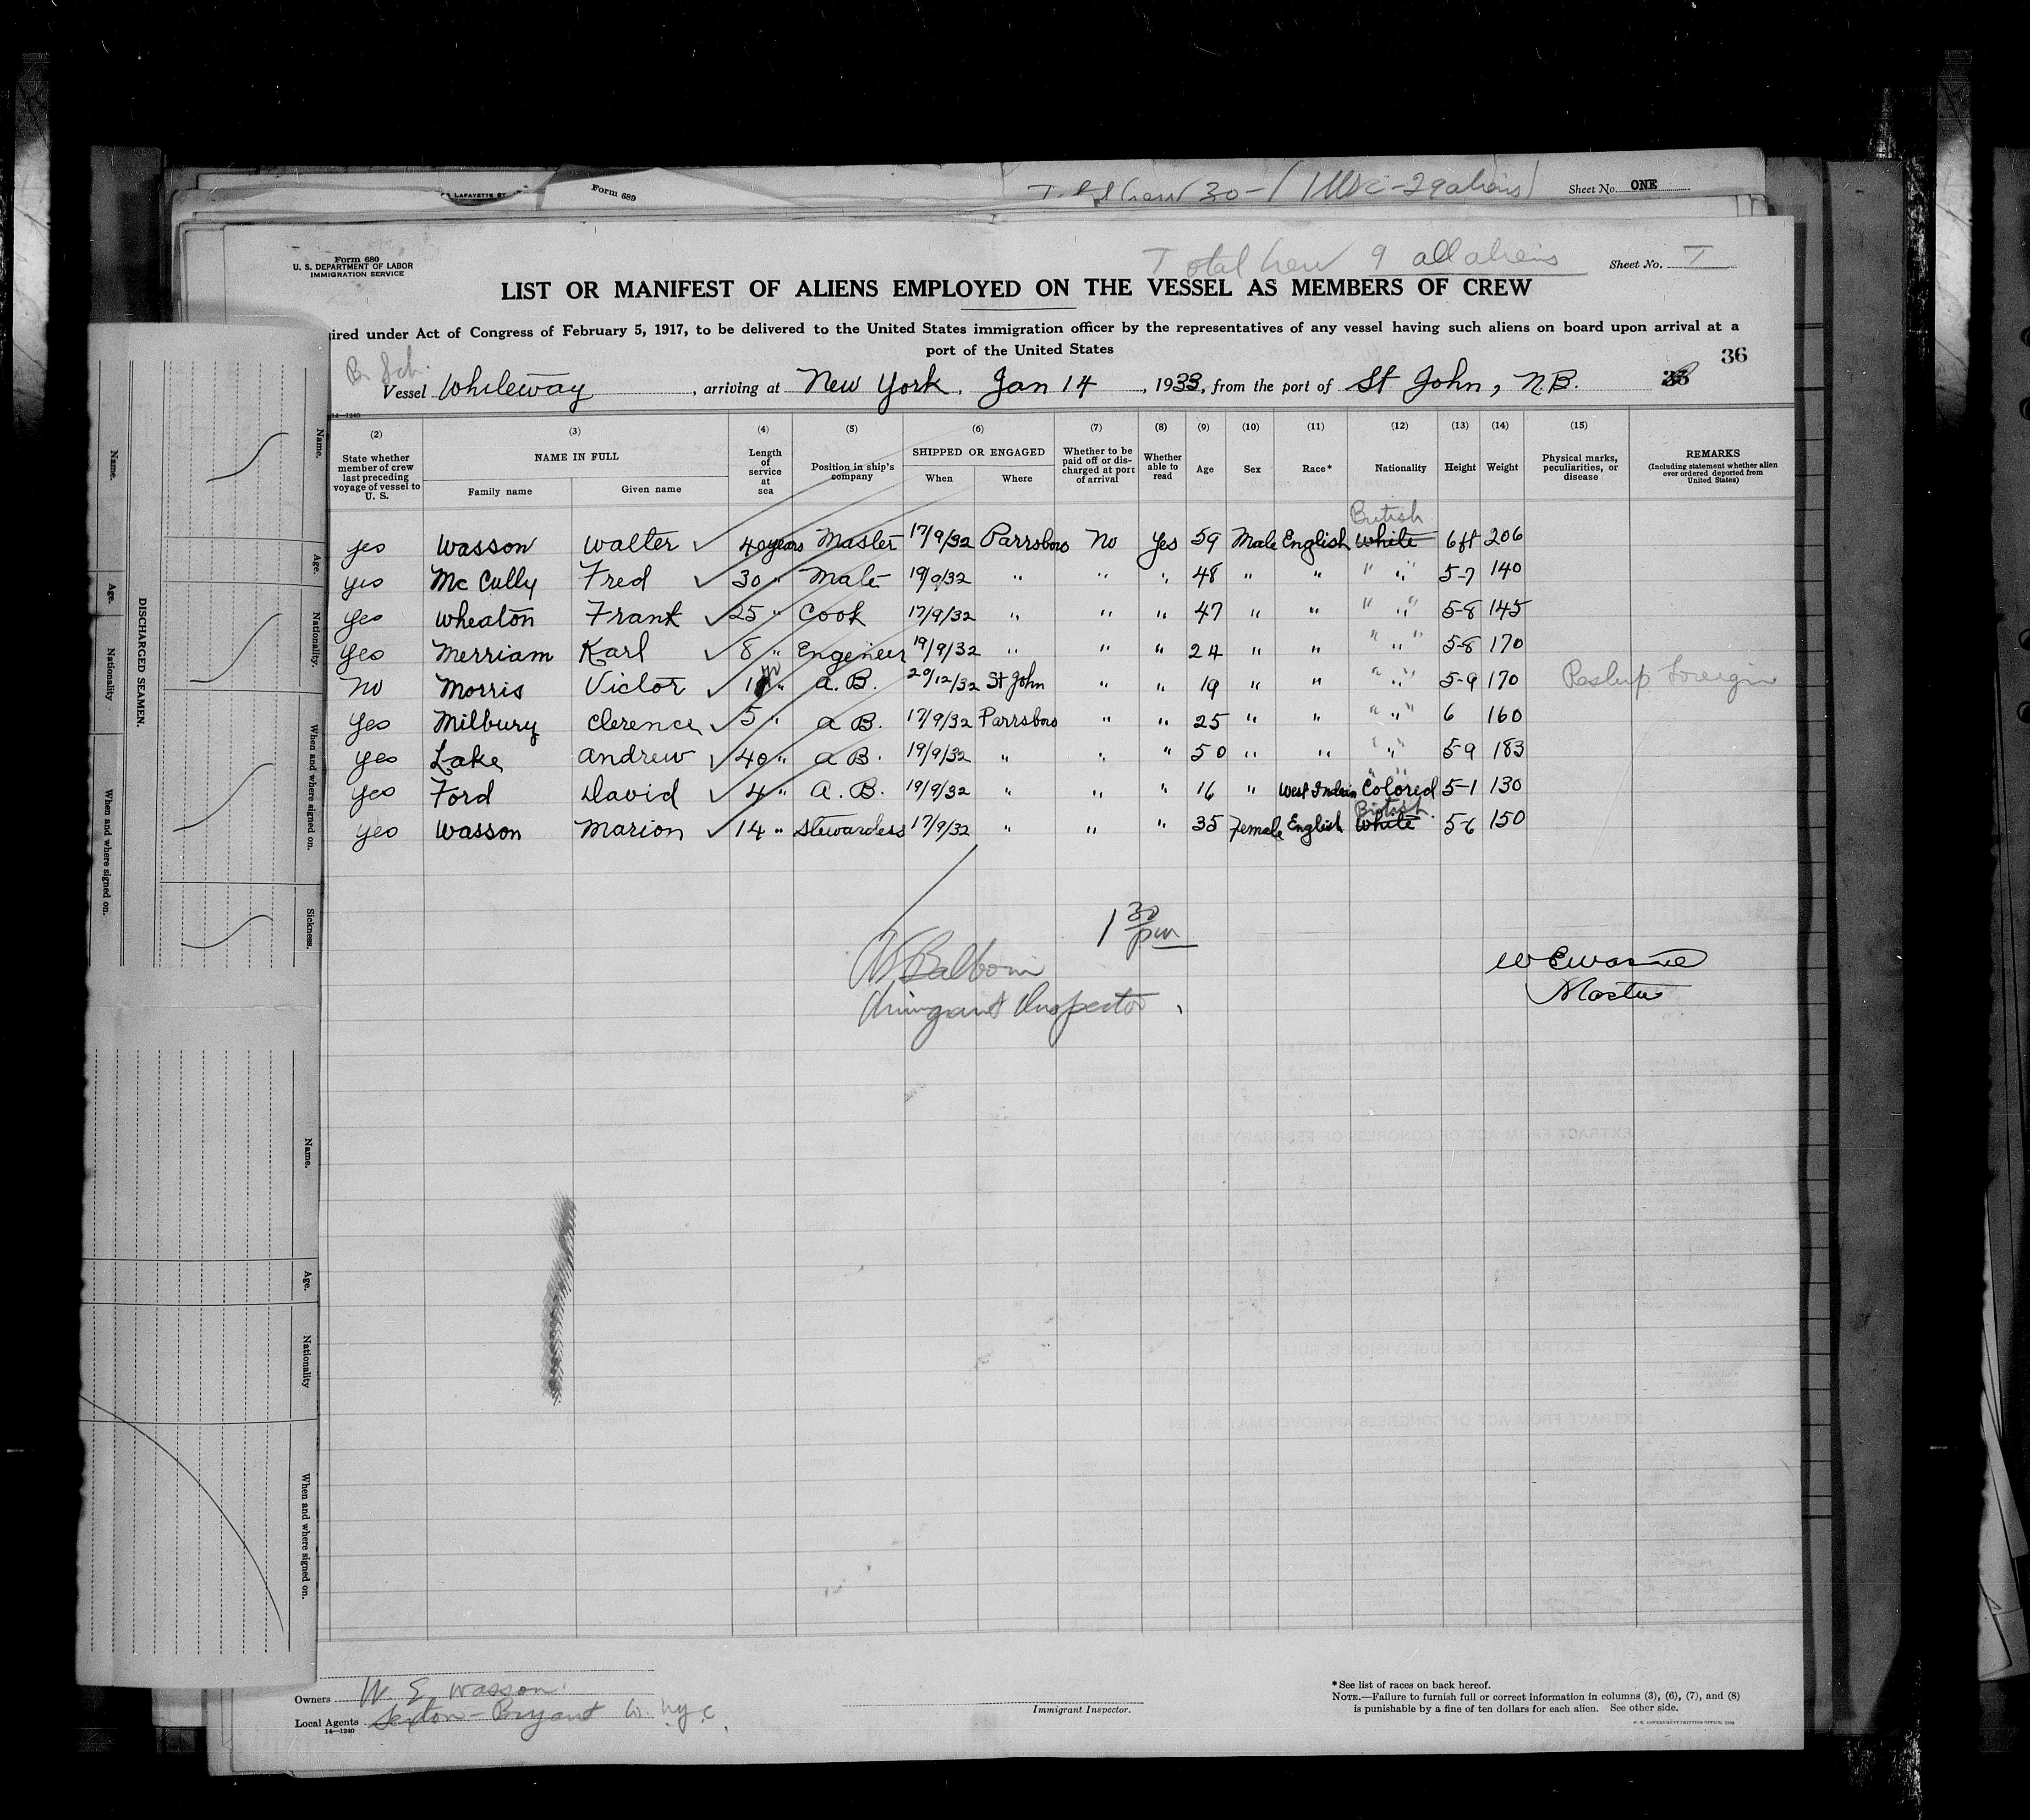 LAFAYETTE ST
Form 689
Sheet No. ONE
Form 680
U. S. DEPARTMENT OF LABOR
IMMIGRATION SERVICE
Total Crew 9 all aliens
Sheet No. I
LIST OR MANIFEST OF ALIENS EMPLOYED ON THE VESSEL AS MEMBERS OF CREW
ired under Act of Congress of February 5, 1917, to be delivered to the United States immigration officer by the representatives of any vessel having such aliens on board upon arrival at a
port of the United States
36
Br. Sch.
Vessel Whileway, arriving at New York, Jan 14, 1933, from the port of St John, N.B.
14—1240
(2) (3) (4) (5) (6) (7) (8) (9) (10) (11) (12) (13) (14) (15)
State whether member of crew last preceding voyage of vessel to U. S.
NAME IN FULL
Family name
Given name
Length of service at sea
Position in ship's company
SHIPPED OR ENGAGED
When
Where
Whether to be paid off or discharged at port of arrival
Whether able to read
Age
Sex
Race*
Nationality
Height
Weight
Physical marks, peculiarities, or disease
REMARKS
(Including statement whether alien ever ordered deported from United States)
British
yes Wasson Walter 40 years Master 17/9/32 Parrsboro No Yes 59 Male English White 6 ft 206
yes Mc Cully Fred 30 " Mate 19/9/32 " " " 48 " " " " 5-7 140
yes Wheaton Frank 25 " Cook 17/9/32 " " " 47 " " " " 5-8 145
yes Merriam Karl 8 " Engeneer 19/9/32 " " " 24 " " " " 5-8 170
no Morris Victor 1 yr " A. B. 20/12/32 St John " " 19 " " " " 5-9 170
yes Milbury Clerence 5 " A B. 17/9/32 Parrsboro " " 25 " " " " 6 160
yes Lake Andrew 40 " A B. 19/9/32 " " " 50 " " " " 5-9 183
yes Ford David 4 " A. B. 19/9/32 " " " 16 " West Indian Colored 5-1 130
British
yes Wasson Marion 14 " Stewardess 17/9/32 " " " 35 Female English White 5-6 150
1 30 pm
Immigrant Inspector
W E Wasson
Master
Name.
Age.
Nationality
When and where signed on.
DISCHARGED SEAMEN.
Name.
Age.
Nationality.
When and where signed on.
Sickness.
Name.
Age.
Nationality
When and where signed on.
Owners W. E Wasson.
Local Agents Sexton-Bryant Co. N.Y.C.
14—1240
Immigrant Inspector.
*See list of races on back hereof.
NOTE.—Failure to furnish full or correct information in columns (3), (6), (7), and (8)
is punishable by a fine of ten dollars for each alien. See other side.